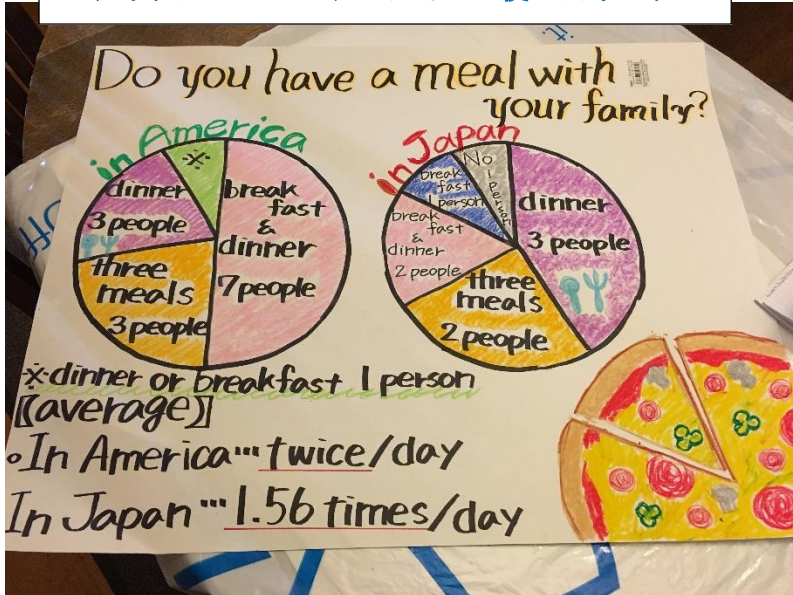 Do you have a meal with
your family?
in America
※
break
fast
&
dinner
7 people
dinner
3 people
three
meals
3 people
in Japan
No
1
person
break
fast
1 person
dinner
3 people
break
fast
&
dinner
2 people
three
meals
2 people
※dinner or breakfast 1 person
〖average〗
In America…twice/day
In Japan…1.56 times/day
it.